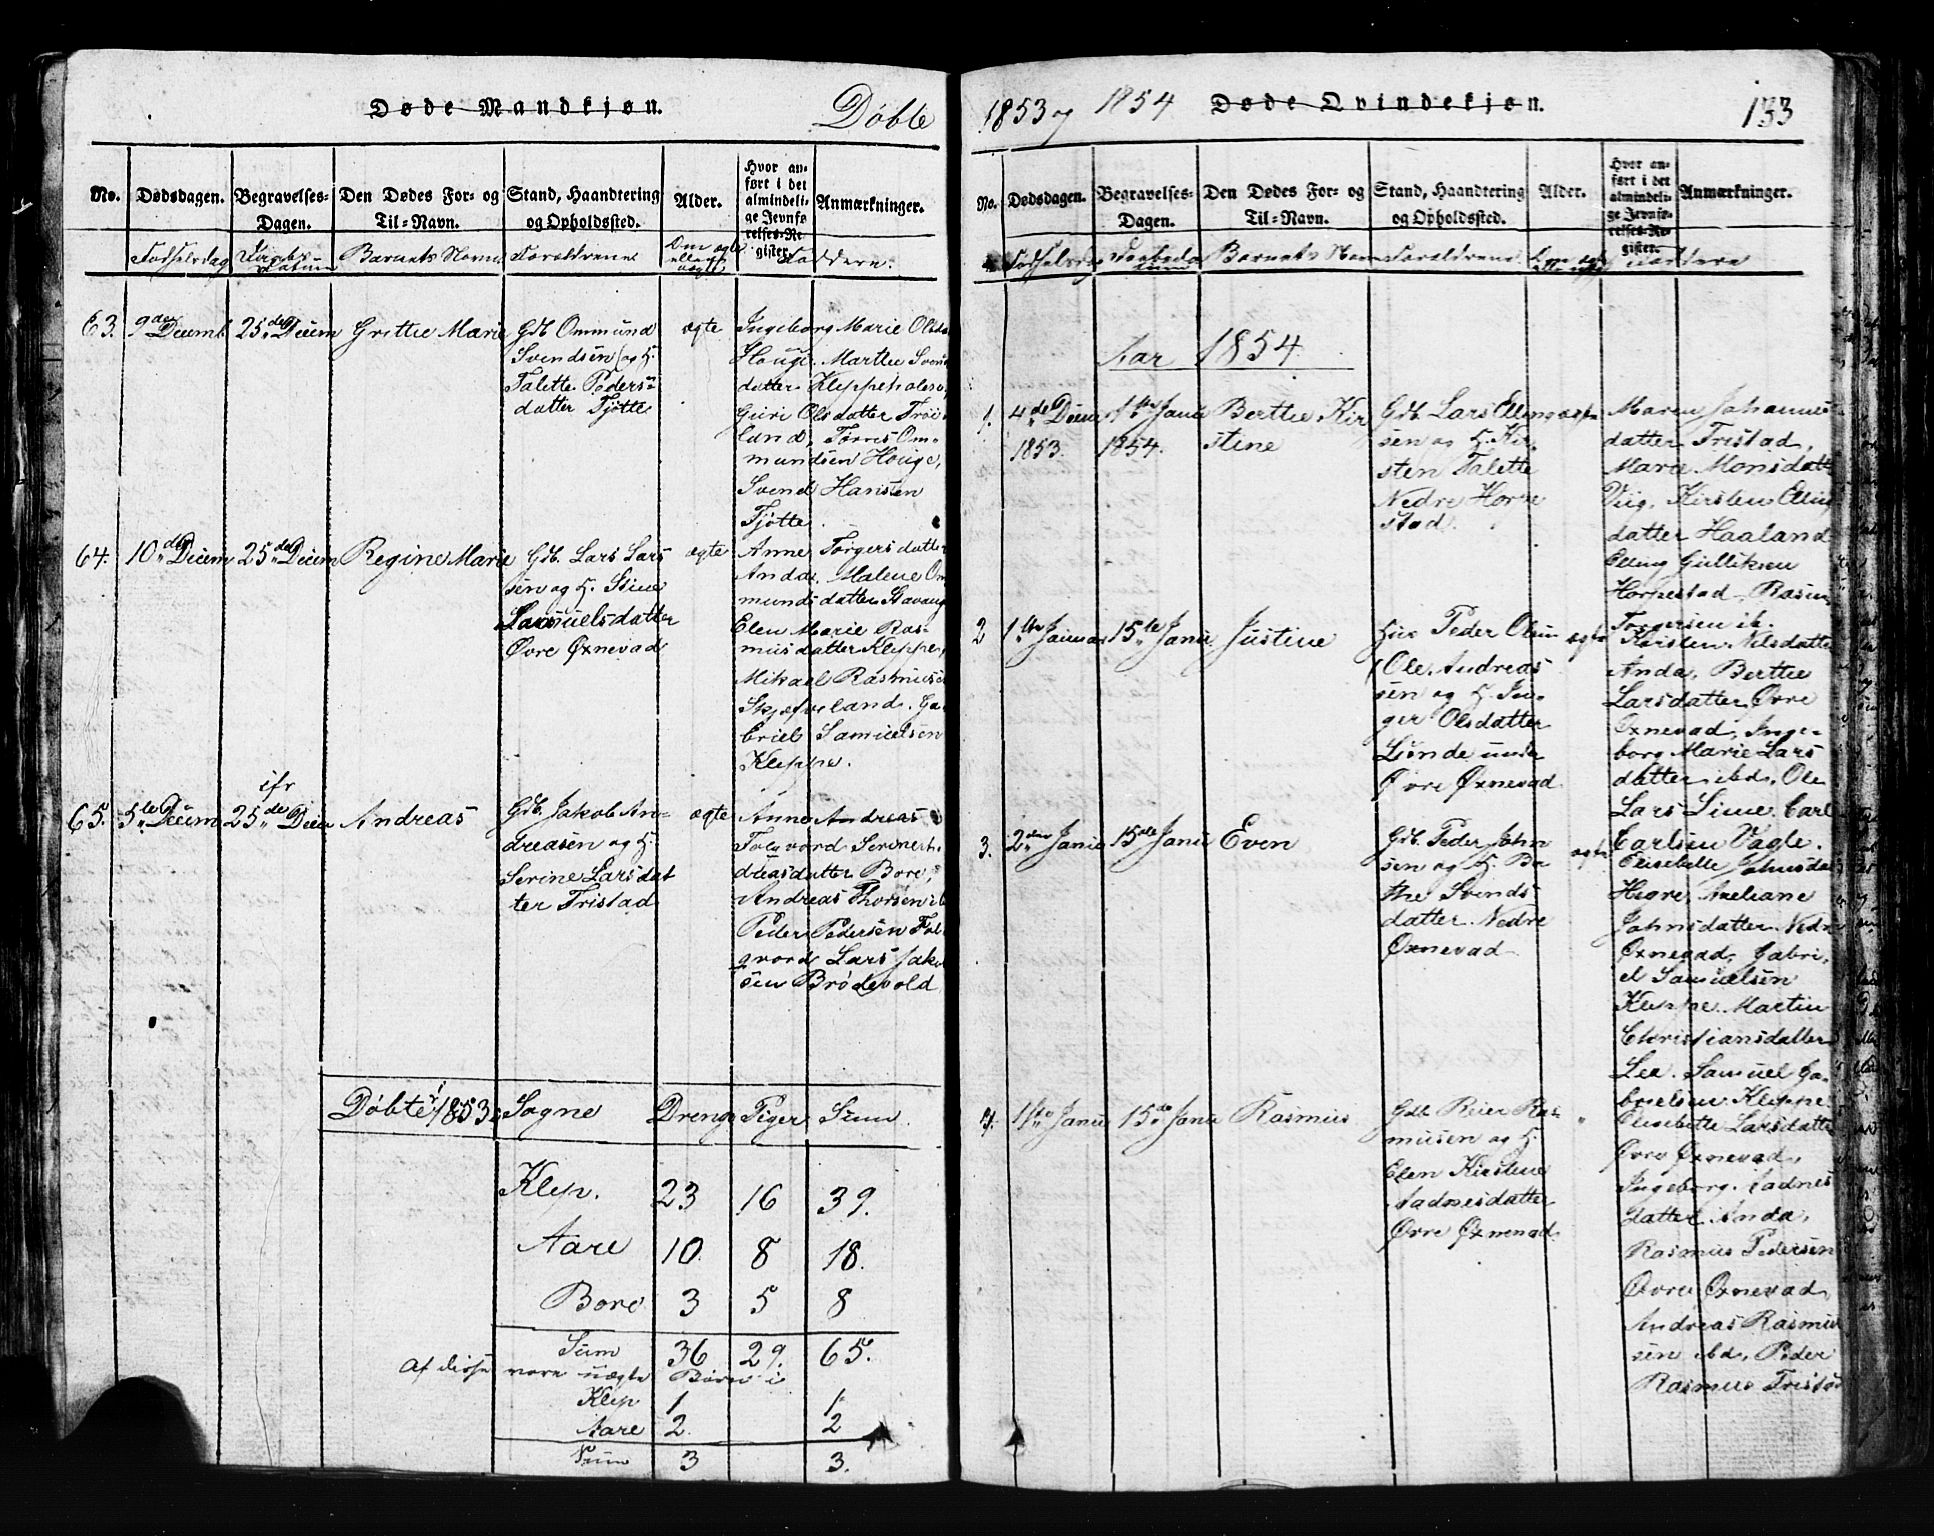 Døde Mandkjøn.
Døbte
No.
Dødsdagen.
Begravelses-
Dagen.
Den Dødes For- og
Til-Navn.
Stand, Haandtering
og Opholdssted.
Alder.
Hvor an-
ført i det
almindeli-
ge Jevnfø
relses-Re
gister.
Anmærkninger.
Fødselsdag
Barnets Navn
Forældrene
Faddere.
63.
9de Decemb
25de Decem
Grethe Marie
Gdb. Ommund
Svendsen og H.
Talette Peders-
datter Tjøtte
ægte
Ingeborg Marie Olsd
Houge. Marthe Svens
datter Kleppeholen,
Guri Olsdatter Frøi-
land, Tørres Om-
mundsen Houge,
Svend Hansen
Tjøtte.
64.
10de Decem
25de Decem
Regine Marie
Gdb. Lars Lars
sen og H. Stine
Samuelsdatter
Øvre Øxnevad
ægte
Anne Torgersdatter
Anda. Malene Om
mundsdatter Stavang
Elen Marie Ras-
musdatter Kleppe,
Mikael Rasmusse
Skjæfveland. Ga-
briel Samuelsen
Kleppe.
65.
5te Decem
25de Decem
Andreas
Gdb. Jakob An-
dreasen og H.
Serine Larsdat
ter Tristad
ægte
Anne Andreas
Folqvord Serine
dreasdatter Bore,
Andreas Thorsen ib
Peder Pedersen Fol-
qvord Lars Jakob
sen Brødevold
Døbte i 1853
Sogne
Drenge
Piger
Sum.
Klep.
23
16
39.
Aare
10.
8
18.
Bore
3
5
8
Sum
36
29.
65.
Af disse vare uægte Børn i
Klep
1
1
Aare
2.
2
Sum
3
3.
1853 og 1854
Døde Qvindekjøn.
133
No.
Dødsdagen.
Begravelses-
Dagen.
Den Dødes For- og
Til-Navn.
Stand, Haandtering
og Opholdssted.
Alder.
Hvor an-
ført i det
almindeli-
ge Jevnfø-
relses-Re-
gister.
Anmærkninger.
Barnets Navn
Forældrene
Aar 1854.
1.
4de Decem
1853.
1ste Janu
1854.
Berthe Kir
stine
Gdb. Lars Ellings
sen og H. Kir
sten Talette
Nedre Horpe
stad.
ægte
Maren Johannes
datter Tristad,
Marie Monsdatt
Viig. Kirsten Elling
datter Haaland
Elling Gulliksen
Horpestad, Rasm
Torgersen ib.
2
1ste Januar
15de Janu
Justine
Huus Peder Olsen
(Ole Andreas
sen og H. In-
ger Olsdatter
Lunde under
Øvre Øxnevad
ægte
Kirsten Nilsdatter
Anda, Berthe
Larsdatter Øvre
Øxnevad, Inge-
borg Marie Lars
datter ibd, Ole
Lars Lime. Carl
Carlsen Vagle.
3.
2den Janu
15de Janu
Even
Gdb. Peder John
sen og H. Ber
the Svends
datter. Nedre
Øxnevad
ægte
Elisebette Johnsdat
Hegre, Axeliane
Johnsdatter. Nedre
Øxnevad, Gabri-
el Samuelsen
Kleppe. Martin
Christiansdatter
Lea. Samuel Ga-
brielsen Kleppe
4.
1ste Janu
15de Janu
Rasmus
Gdb. Reier Ras-
musen og H.
Elen Kirstine
Aadnesdatter
Øvre Øxnevad
Elisebette Larsdatter
Øvre Øxnevad,
Ingeborg. Aadnes
datter. Anda,
Rasmus Pedersen
Øvre Øxnevad,
Andreas Rasmus
sen ibd, Peder
Rasmus Tristad